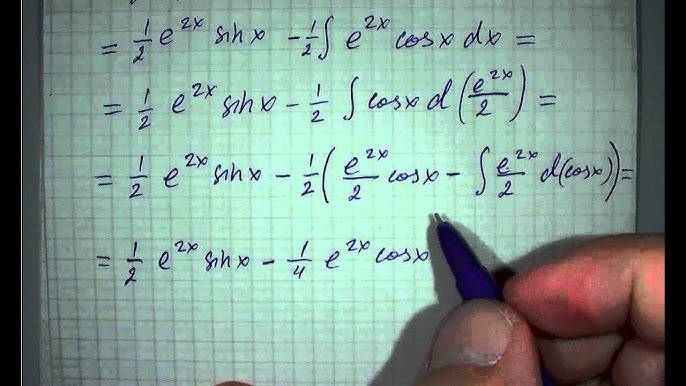 = 1/2 e^{2x} sin x - 1/2 ∫ e^{2x} cos x dx =
= 1/2 e^{2x} sin x - 1/2 ∫ cos x d(e^{2x}/2) =
= 1/2 e^{2x} sin x - 1/2 (e^{2x}/2 cos x - ∫ e^{2x}/2 d(cos x)) =
= 1/2 e^{2x} sin x - 1/4 e^{2x} cos x